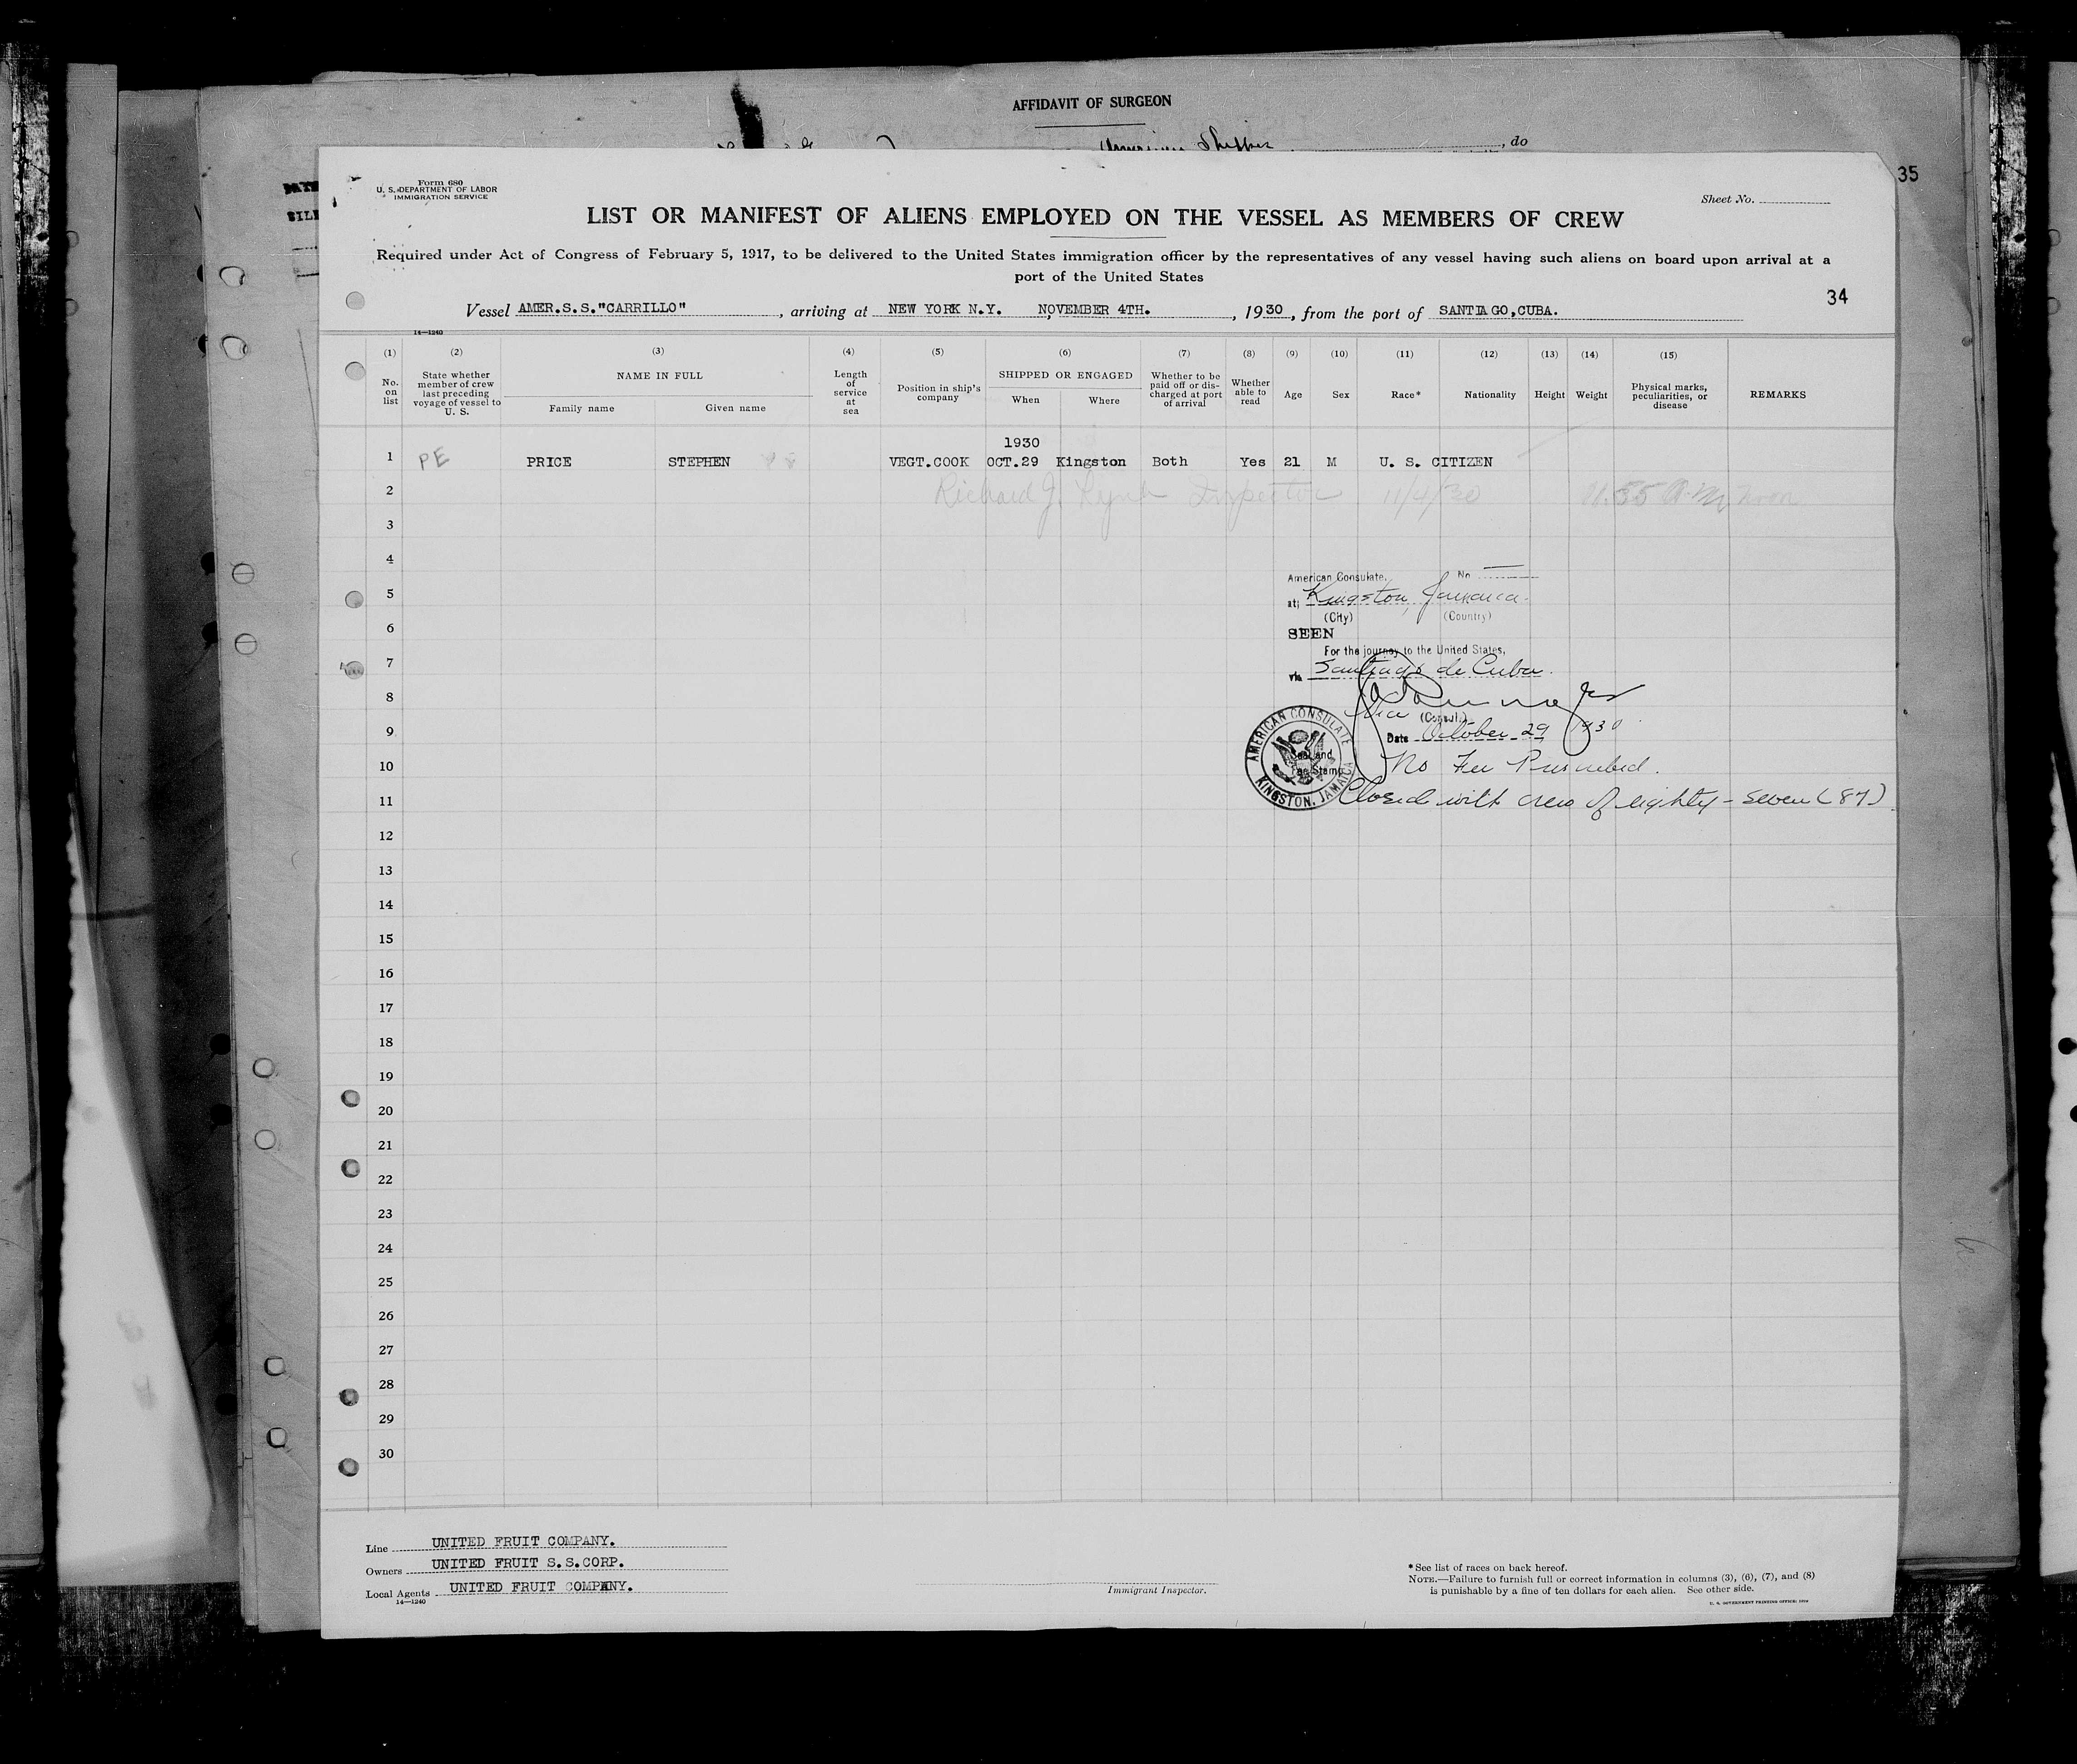 AFFIDAVIT OF SURGEON
American Shipper, do
35
Form 680
U. S. DEPARTMENT OF LABOR
IMMIGRATION SERVICE
Sheet No.
LIST OR MANIFEST OF ALIENS EMPLOYED ON THE VESSEL AS MEMBERS OF CREW
Required under Act of Congress of February 5, 1917, to be delivered to the United States immigration officer by the representatives of any vessel having such aliens on board upon arrival at a
port of the United States
34
Vessel AMER.S.S."CARRILLO", arriving at NEW YORK N.Y. NOVEMBER 4TH., 1930, from the port of SANTIAGO,CUBA.
14—1240
(1) (2) (3) (4) (5) (6) (7) (8) (9) (10) (11) (12) (13) (14) (15)
No. on list
State whether member of crew last preceding voyage of vessel to U. S.
NAME IN FULL
Family name
Given name
Length of service at sea
Position in ship's company
SHIPPED OR ENGAGED
When
Where
Whether to be paid off or discharged at port of arrival
Whether able to read
Age
Sex
Race*
Nationality
Height
Weight
Physical marks, peculiarities, or disease
REMARKS
1930
1 PE PRICE STEPHEN VEGT.COOK OCT.29 Kingston Both Yes 21 M U. S. CITIZEN
2 Richard J. Inspector 11/4/30 11.55 A.M.
3
4
American Consulate, No
5
at Kingston, Jamaica.
(City) (Country)
6
SEEN
For the journey to the United States,
7
via Santiago de Cuba.
8
Vice (Consul.)
9
Date October 29 1930
AMERICAN CONSULATE
KINGSTON, JAMAICA
Seal and
Fee Stamp
10
No Fee Prescribed.
11
Closed with crew of eighty-seven (87)
12
13
14
15
16
17
18
19
20
21
22
23
24
25
26
27
28
29
30
Line UNITED FRUIT COMPANY.
Owners UNITED FRUIT S.S.CORP.
Local Agents UNITED FRUIT COMPANY.
14—1240
Immigrant Inspector.
* See list of races on back hereof.
NOTE.—Failure to furnish full or correct information in columns (3), (6), (7), and (8)
is punishable by a fine of ten dollars for each alien. See other side.